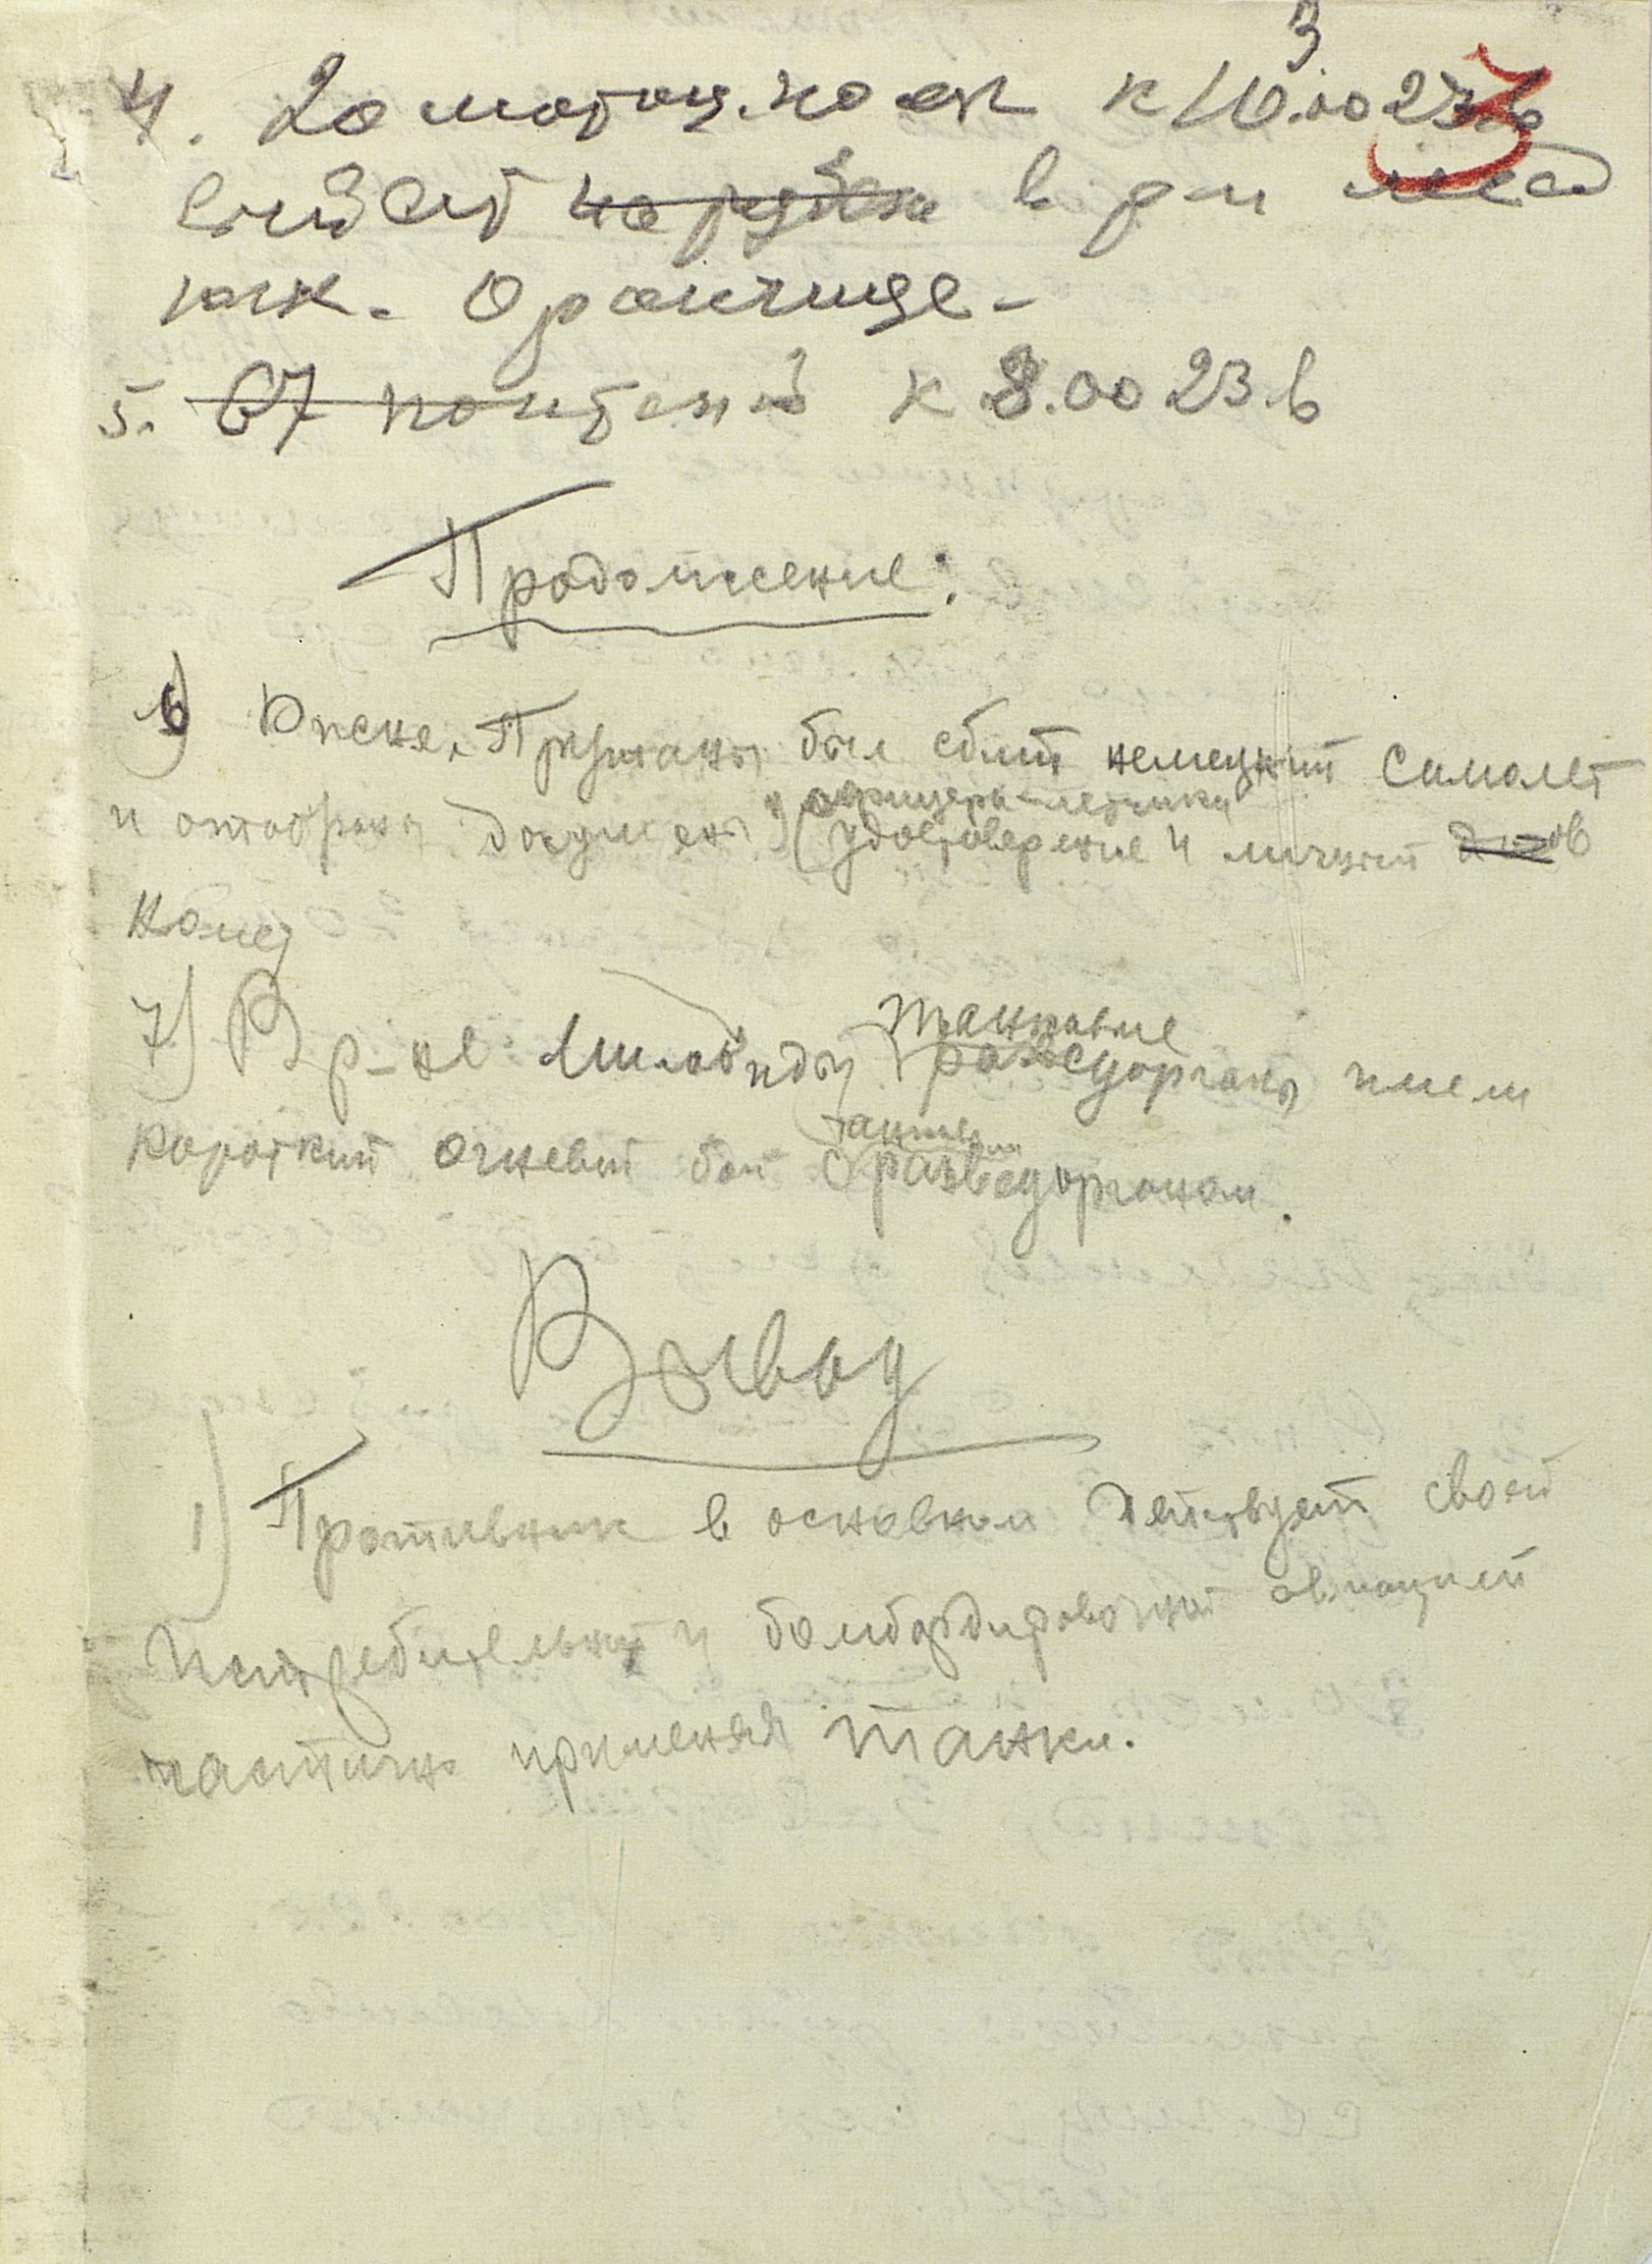 3
4. 20 мотоц. полк к 10.00 23.6
3
следует на рубеж в р-н лес
юж. Оранчице -
5. 67 понтон. б к 8.00 23.6
Продолжение:
6) Южнее Пружаны был сбит немецкий самолет
офицера-летчика
и отобраны документы (удостоверение и личный
номер
танковые
7) В р-не Миловиды разведорганы имели
танковым
короткий огневой бой с разведорганом.
Вывод
1) Противник в основном действует своей
истребительной и бомбардировочной авиацией
частично применяя танки.